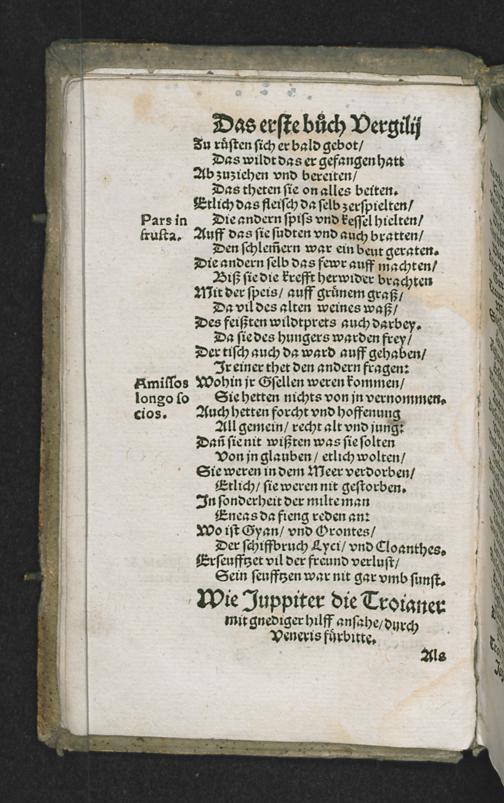 Das erste bůch Vergilij
Zu rüsten sich er bald gebot/
Das wildt das er gefangen hatt
Ab zuziehen vnd bereiten/
Das theten sie on alles beiten.
Etlich das fleisch da selb zerspielten/
Pars in
frusta.
Die andern spiss vnd kessel hielten/
Auff das sie sudten vnd auch bratten/
Den schlem̃ern war ein beut geraten.
Die andern selb das fewr auff machten/
Biß sie die krefft herwider brachten
Mit der speis/ auff grünem graß/
Da vil des alten weines waß/
Des feißten wildtprets auch darbey.
Da sie des hungers warden frey/
Der tisch auch da ward auff gehaben/
Ir einer thet den andern fragen:
Amissos
longo so
cios.
Wohin jr Gsellen weren kommen/
Sie hetten nichts von jn vernommen.
Auch hetten forcht vnd hoffenung
All gemein/ recht alt vnd jung:
Dañ sie nit wißten was sie solten
Von jn glauben/ etlich wolten/
Sie weren in dem Meer verdorben/
Etlich/ sie weren nit gestorben.
In sonderheit der milte man
Eneas da fieng reden an:
Wo ist Gyan/ vnd Orontes/
Der schiffbruch Lyci/ vnd Cloanthes.
Erseufftzet vil der freund verlust/
Sein seufftzen war nit gar vmb sunst.
Wie Juppiter die Troianer
mit gnediger hilff ansahe/ durch
Veneris fürbitte.
Als